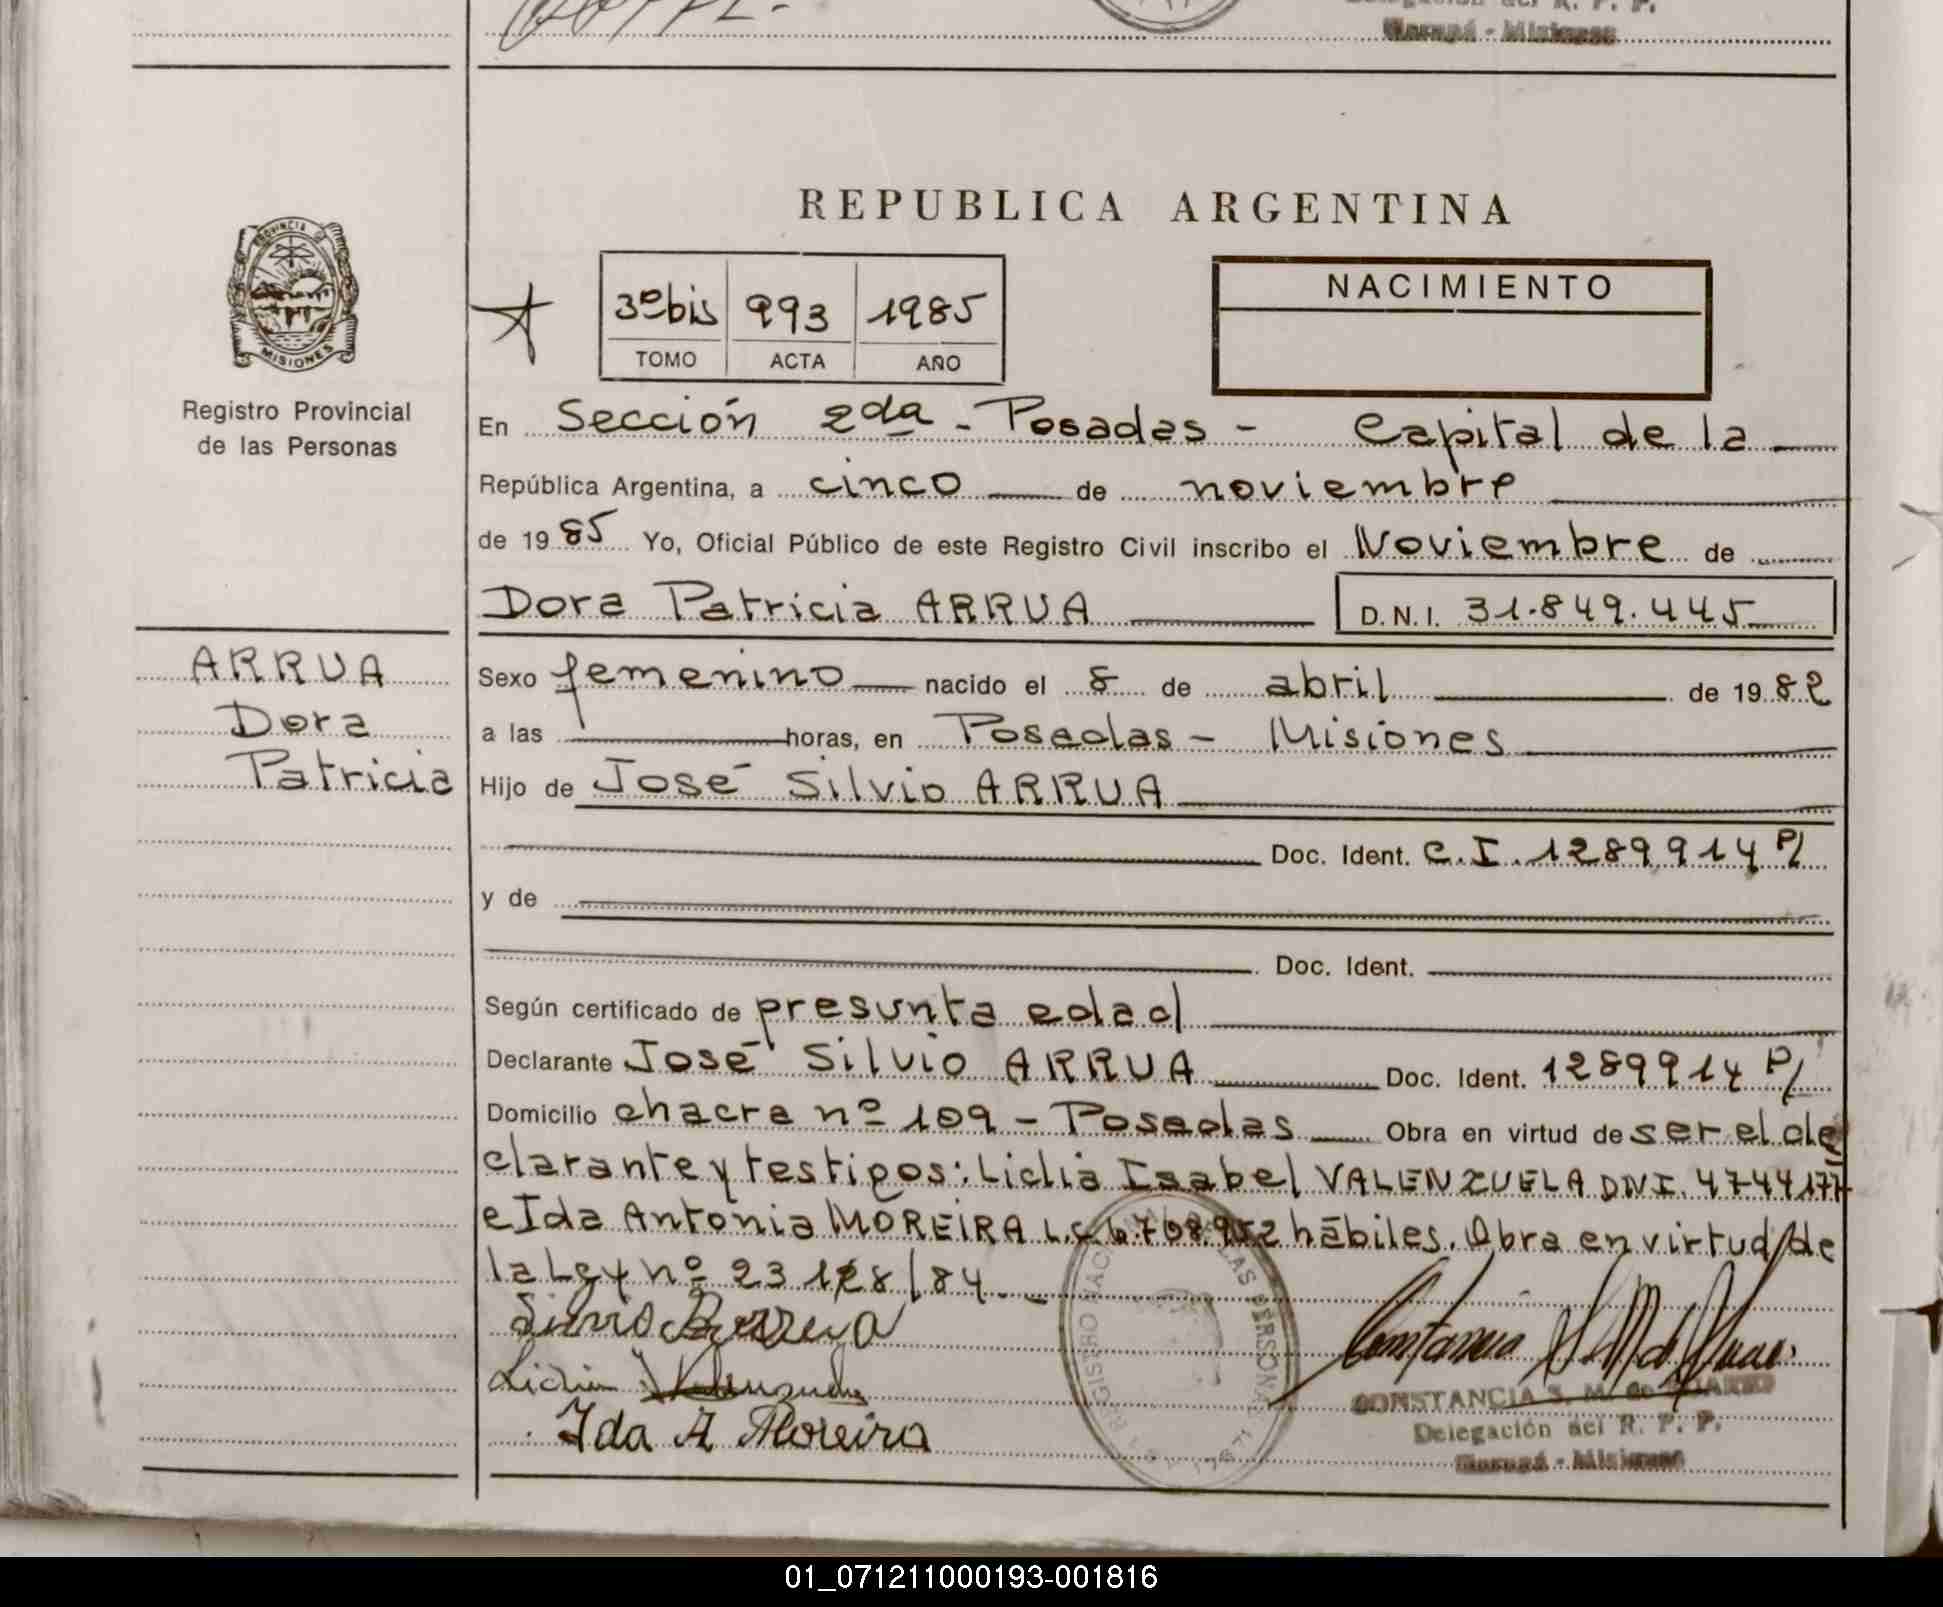 Delegación del R. P. P.
REPUBLICA ARGENTINA
PROVINCIA DE
MISIONES
Registro Provincial
de las Personas
3º bis 993 1985
TOMO ACTA AÑO
NACIMIENTO
En Sección 2da - Posadas - Capital de la
República Argentina, a cinco de noviembre
de 1985 Yo, Oficial Público de este Registro Civil inscribo el Noviembre de
Dora Patricia ARRUA D.N.I. 31.849.445
ARRUA
Dora
Patricia
Sexo femenino nacido el 8 de abril de 1982
a las horas, en Posadas - Misiones
Hijo de José Silvio ARRUA
Doc. Ident. C.I. 1289914 P/
y de
Doc. Ident.
Según certificado de presunta edad
Declarante José Silvio ARRUA Doc. Ident. 1289914 P/
Domicilio chacra nº 109 - Posadas Obra en virtud de ser el de
clarante y testigos: Lidia Isabel VALENZUELA DNI. 4744177
e Ida Antonia MOREIRA L.C. 6.708.952 hábiles. Obra en virtud de
la Ley nº 23128/84.-
Lidia Valenzuela
Ida A Moreira
REGISTRO NACIONAL DE LAS PERSONAS
CONSTANCIA S. M. de
Delegación del R. P. P.
01_071211000193-001816